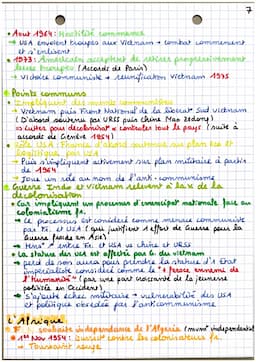 7
• Aout 1964 : Hostilité commence
→ USA envoient troupes aux Vietnam → combat commencent et s'enlisent
• 1973 : Américains acceptent de retirer progressivement leurs troupes (Accords de Paris)
→ Victoire communiste → réunification Vietnam 1975
Points communs
• Impliquent des communistes
→ Vietminh puis Front National de la libérat° Sud Vietnam
(D'abord soutenu par URSS puis chine (Mao Zedong)
→ luttes pour décolonisat° & contrôler tout le pays (suite à accords de Genève 1954)
• Rôle USA : France d'abord soutenue sur plan éco et logistique par USA
→ Puis s'impliquent activement sur plan militaire à partir de 1964
→ Joue un rôle au nom de l'anti-communisme
• Guerre Indo et Vietnam relèvent à la x de la décolonisation
• Car impliquent un processus d'émancipat° nationale face au colonialisme fr.
→ Le processus est considéré comme menace communiste par Fr. et USA (qui justifient l'effort de Guerre pour la Guerre froide en Asie)
entre Fr et USA vs chine et URSS
• La statue des USA est affectée par G. du vietnam
→ perd de son aura puis prendre la statue d'1 état impérialiste considéré comme le "+ féroce ennemi de l'Humanité" (par une part croissante de la jeunesse politisée en Occident)
→ S'ajoute échec militaire → vulnérabilité des USA et politique obsédée par l'anticommunisme
L'Afrique
• souhaite indépendance de l'Algérie (mouv° indépendantiste)
• 1er Nov 1954 : contre les colonisateurs fr.
→ Toussaint rouge